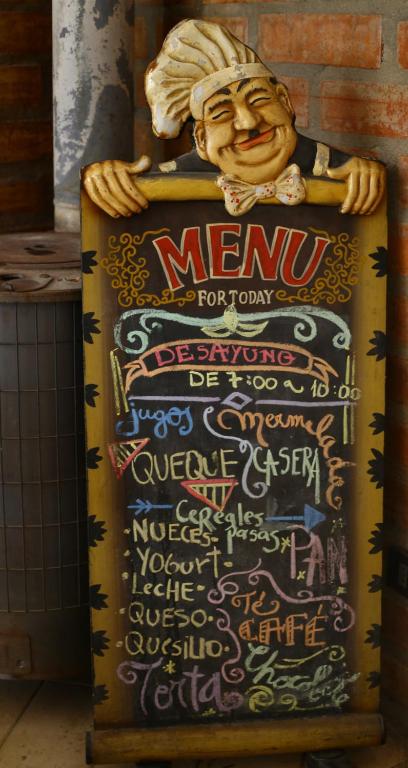 MENU
FOR TODAY
DESAYUNO
DE 7:00 a 10:00
jugos
Mermelada
QUEQUE CASERA
Cereales
·NUECES- pasas*
PAN
·Yogurt-
·LECHE-
·QUESO·
·Quesillo·
Té
CAFÉ
Torta